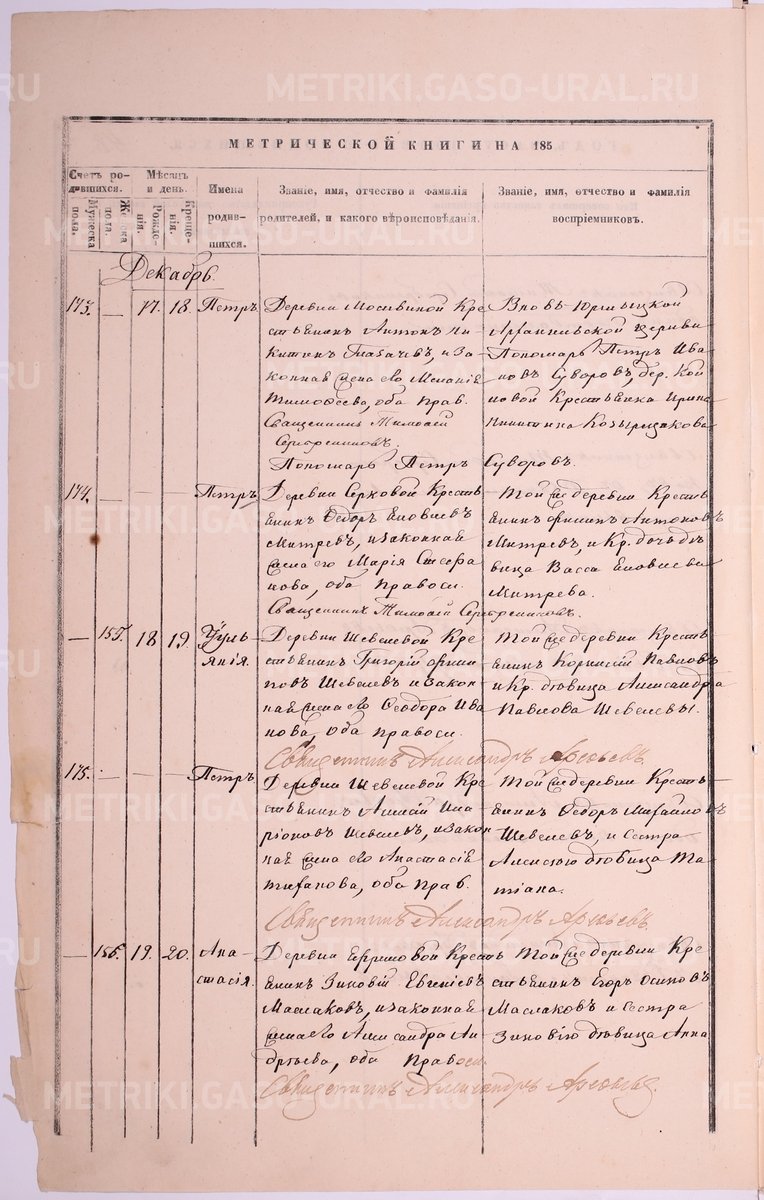 METRIKI.GASO-URAL.RU
МЕТРИЧЕСКОЙ КНИГИ НА 185
Счетъ родившихся.
Мужеска пола.
Женска пола.
Мѣсяцъ и день.
Рожденія.
Крещенія.
Имена родившихся.
Званіе, имя, отчество и фамилія
родителей, и какого вѣроисповѣданія.
Званіе, имя, отчество и фамилія
воспріемниковъ.
Декабрь.
173. — 17. 18. Петръ
Деревни Мосъвиной Кре
стьянинъ Антонъ Ни
китинъ Глабачевъ, и За
конная жена его Меланія
Тимофеева, оба Прав.
Священникъ Тимофей
Серебренниковъ.
Пономарь Петръ Суворовъ.
Вновь-Юрмыцкой
Архангельской церкви
Пономарь Петръ Ива
новъ Суворовъ, дер.
новой Крестьянка Ирина
Никитина
174. — — — Петръ
Деревни Серковой Кресть
янинъ Федоръ
Митревъ, и законная
жена его Марія Стефа
нова, оба Правосл.
Священникъ Тимофей Серебренниковъ.
Той же деревни Кресть
янинъ Филипъ Антоновъ
Митревъ, и Кр. дочь дѣ
вица Васса
Митрева.
— 155. 18 19. Іуліянія.
Деревни Шевелевой Кре
стьянинъ Григорій Филип
повъ Шевелевъ и закон
ная жена его Феодора Ива
нова, оба Правосл.
Священникъ Александръ
Той же деревни Кресть
янинъ Корнилій Павловъ
и Кр. дѣвица Александра
Павлова Шевелевы.
175. — — — Петръ
Деревни Шевелевой Кре
стьянинъ Алексій Ила
ріоновъ Шевелевъ, и закон
ная жена его Анастасія
оба Прав.
Священникъ Александръ
Той же деревни Кресть
янинъ Федоръ Михайловъ
Шевелевъ, и Сестра
Алексѣю дѣвица Та
тіана.
— 156. 19. 20. Анастасія.
Деревни Ефремовой Кресть
янинъ Зиновій Евгеніевъ
Маслаковъ, и законная
жена его Александра Ан
дреева, оба Правосл.
Священникъ Александръ
Той же деревни Кре
стьянинъ Егоръ Осиповъ
Маслаковъ и Сестра
Зиновію дѣвица Анна